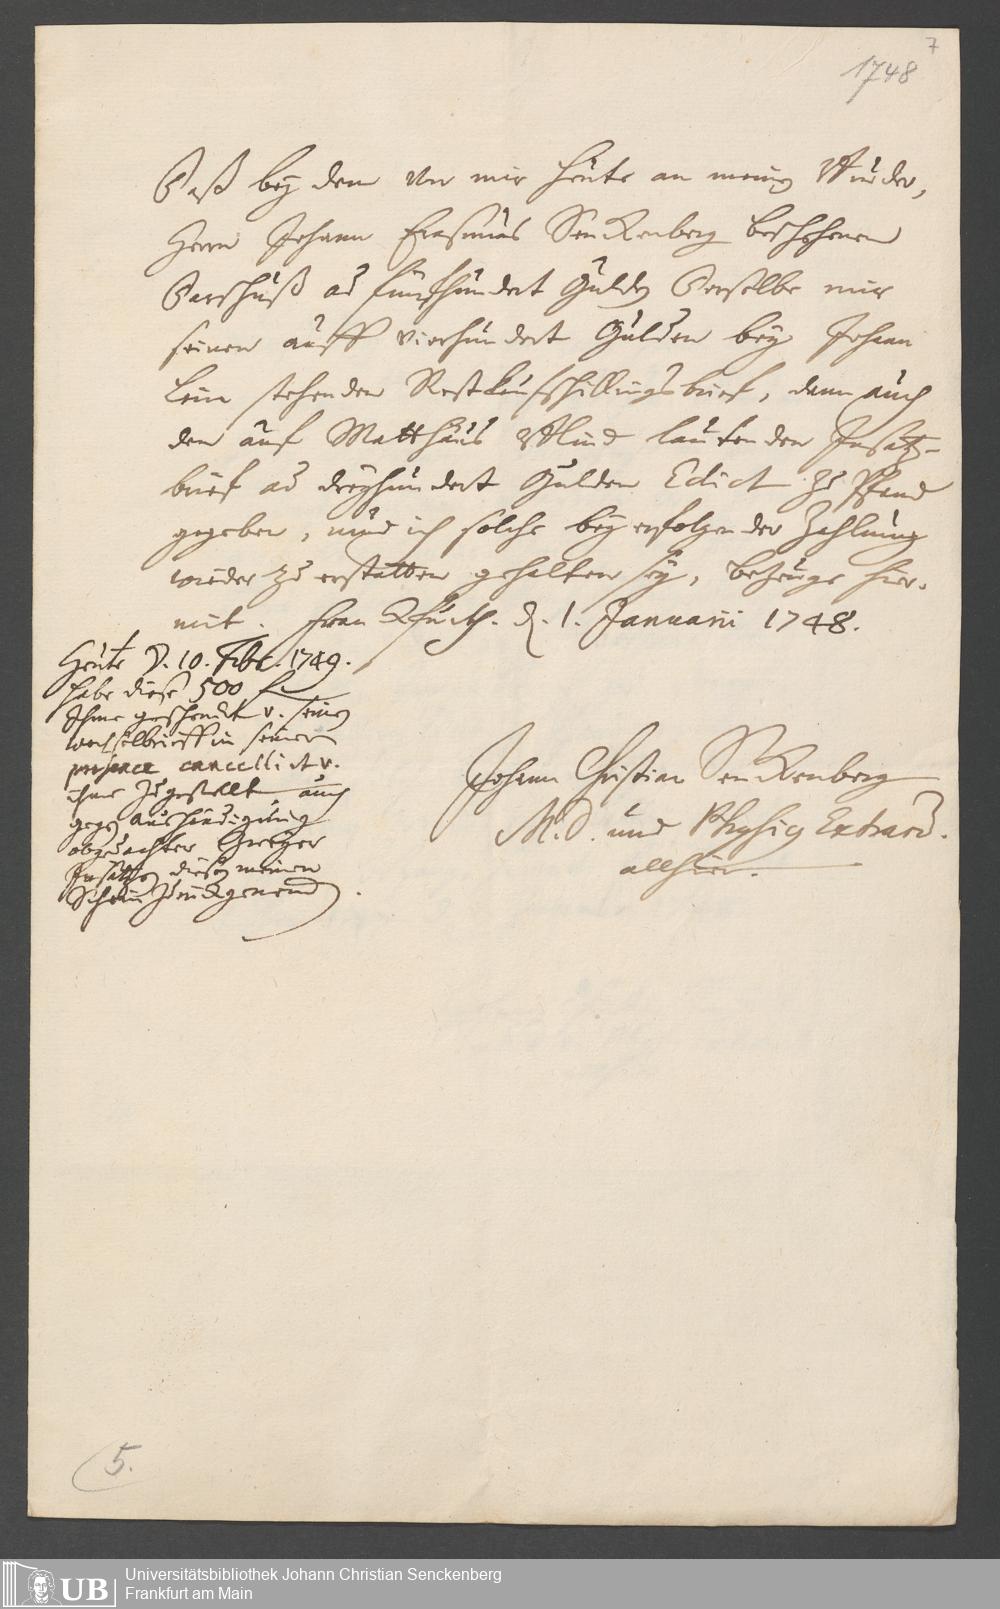 7
1748
Daß bey dem von mir heute an meinen Bruder,
Herrn Johann Erasmus Senckenberg beschehenen
Vorschuß ad fünfhundert Gulden derselbe mir
seinen auff vierhundert Gulden bey Johann
stehenden Restkaufschillingsbrief, dann auch
den auf Matthäus lautenden Insatz-
brief ad dreyhundert Gulden Edict zu Pfand
gegeben, und ich solche bey erfolgender Zahlung
wieder zu erstatten gehalten sey, bezeuge hier-
mit. Franckfurth. d. 1. Januarii 1748.
Heute d. 10. Febr. 1749.
habe diese 500 f
Ihme geschenckt u. seinen
wechselbrieff in seiner
presence cancellirt u.
ihme zugestellt, auch
gegen aushändigung
obgedachter
Insätze diesen meinen
Schein zurückgenommen.
Johann Christian Senckenberg
M.D. und Physicus Extraord.
allhier.
5.
UB
Universitätsbibliothek Johann Christian Senckenberg
Frankfurt am Main